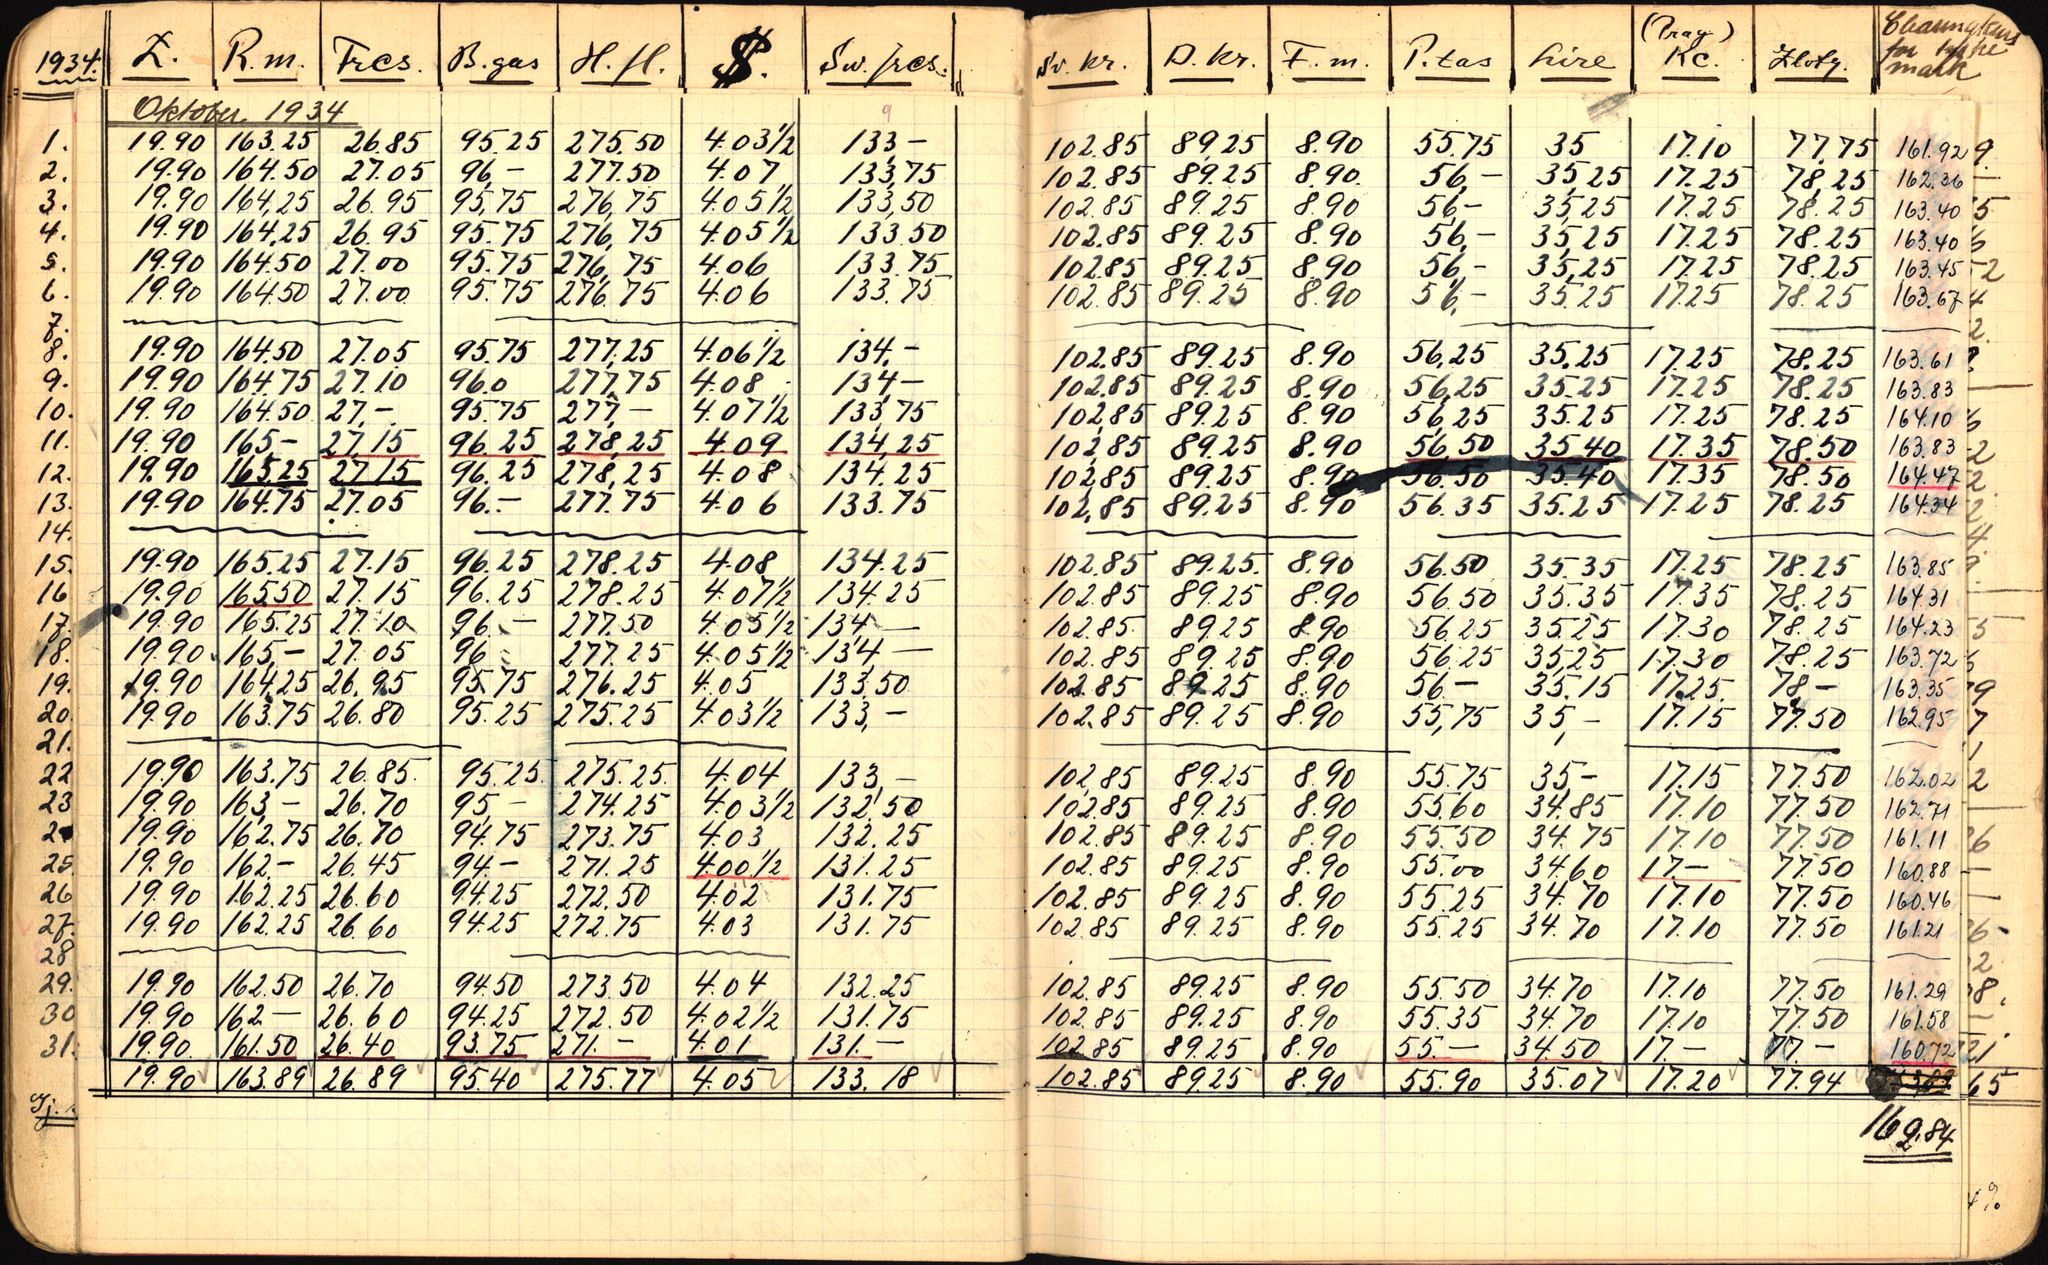 1934. £. R.m. Frcs. B.gas H.fl. $. Sw. frcs. Sv. kr. D. Kr. F.m. P.tas Lire (Prag) Kc. Zloty. Clearingkurs for tyske mark
Oktober 1934
1. 19.90 163.25 26.85 95.25 275.50 4.03½ 133,- 102.85 89.25 8.90 55.75 35 17.10 77,75 161.92 9.
2. 19.90 164.50 27.05 96,- 277.50 4.07 133,75 102.85 89.25 8.90. 56,- 35,25 17.25 78,25 162.36 -
3. 19.90 164,25 26.95 95,75 276,75 4.05½ 133,50 102.85 89.25 8.90 56,- 35,25 17.25 78.25 163.40 5
4. 19.90 164,25 26.95 95.75 276,75 4.05½ 133.50 102.85 89.25 8.90 56,- 35,25 17.25 78.25 163.40
5. 19.90 164.50 27.00 95.75 276,75 4.06 133.75 102.85 89.25 8.90 56,- 35,25 17.25 78.25 163.45 52
6. 19.90 164.50 27.00 95.75 276.75 4.06 133.75 102.85 89.25 8.90 56,- 35.25 17.25 78.25 163.67
7.
8. 19.90 164.50 27.05 95.75 277,25 4.06½ 134,- 102.85 89.25 8.90 56,25 35,25 17.25 78.25 163.61
9. 19.90 164.75 27.10 96.0 277,75 4.08 134,- 102.85 89.25 8.90 56,25 35.25 17.25 78.25 163.83
10. 19.90 164.50 27,- 95.75 277,- 4.07½ 133,75 102,85 89.25 8.90 56,25 35.25 17.25 78.25 164.10
11. 19.90 165,- 27,15 96.25 278,25 4.09 134,25 102,85 89.25 8.90 56,50 35.40 17.35 78.50 163.83
12. 19.90 165.25 27.15 96.25 278,25 4.08 134.25 102,85 89.25 8.90 56.50 35.40 17.35 78.50 164.47
13. 19.90 164.75 27.05 96.- 277.75 4.06 133.75 102,85 89.25 8.90 56.35 35.25 17.25 78.25 164.34
14.
15. 19.90 165.25 27.15 96.25 278.25 4.08 134.25 102.85 89.25 8.90 56.50 35.35 17.25 78.25 163.85
16 19.90 165.50 27.15 96.25 278.25 4.07½ 134.25 102.85 89.25 8.90 56.50 35.35 17.35 78.25 164.31
17. 19.90 165.25 27.10 96.- 277.50 4.05½ 134,- 102.85 89.25 8.90 56.25 35.25 17.30 78.25 164.23 5
18. 19.90. 165,- 27.05 96 277.25 4.05½ 134,- 102.85 89.25 8.90 56.25 35,25 17.30 78.25 163.72
19. 19.90 164,25 26.95 95.75 276.25 4.05 133,50 102.85 89.25 8.90 56,- 35.15 17.25. 78,- 163.35 9
20. 19.90 163.75 26.80 95.25 275.25 4.03½ 133,- 102.85 89.25 8.90 55,75 35,- 17.15 77.50 162.95 7
21.
22 19.90 163.75 26.85. 95.25. 275.25. 4.04 133,- 102.85 89.25 8.90 55.75 35,- 17.15 77.50 162.02 2
23 19.90. 163,- 26.70 95,- 274.25 4.03½ 132,50 102.85 89.25 8.90 55.60 34,85 17.10 77.50 162.71
24 19.90 162.75 26.70 94.75 273.75 4.03 132.25 102.85 89.25 8.90 55.50 34.75 17.10 77.50 161.11 26
25. 19.90 162.- 26.45 94.- 271.25 4.00½ 131.25 102.85 89.25 8.90 55.00 34.60 17.- 77.50 160.88 -
26 19.90 162.25 26.60 94.25 272.50 4.02 131.75 102.85 89.25 8.90 55.25 34.70 17.10 77.50 160.46 -
27. 19.90 162.25 26.60 94.25 272.75 4.03 131.75 102.85 89.25 8.90 55.25 34.70 17.10 77.50 161.21 26-
28
29. 19.90 162.50 26.70 94.50 273.50 4.04 132.25 102.85 89.25 8.90 55.50 34.70 17.10 77.50 161.29 08.
30 19.90 162.- 26.60 94.25 272.50 4.02½ 131.75 102.85 89.25 8.90 55.35 34.70 17.10 77.50 161.58 -
31. 19.90. 161.50 26.40 93.75 271.- 4.01 131.- 102.85 89.25 8.90 55.- 34.50 17.- 77.- 160.72 21
19.90 163.89 26.89 95.40 275.77 4.05 133.18 102.85 89.25 8.90 55.90 35.07 17.20 77.94 65
162.84
4%